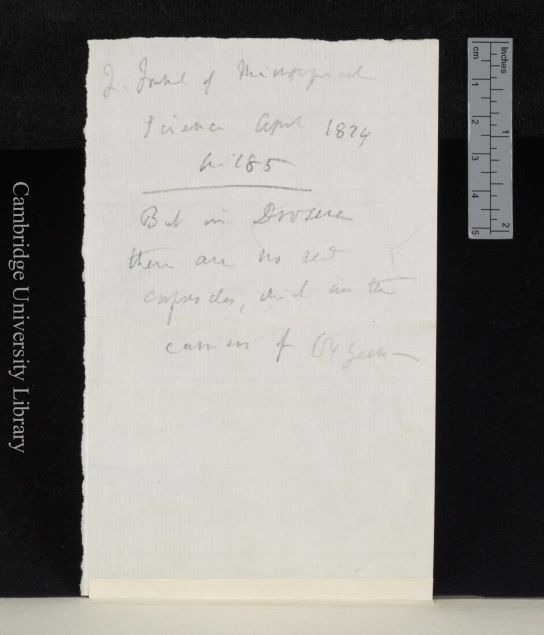 Q. Journal of Microscopical
Science April 1874
p. 185
But in Drosera
there are no red
corpuscles, which are the
carriers of Oxygen—
Cambridge University Library
Inches
cm
1
2
3
4
5
1
2